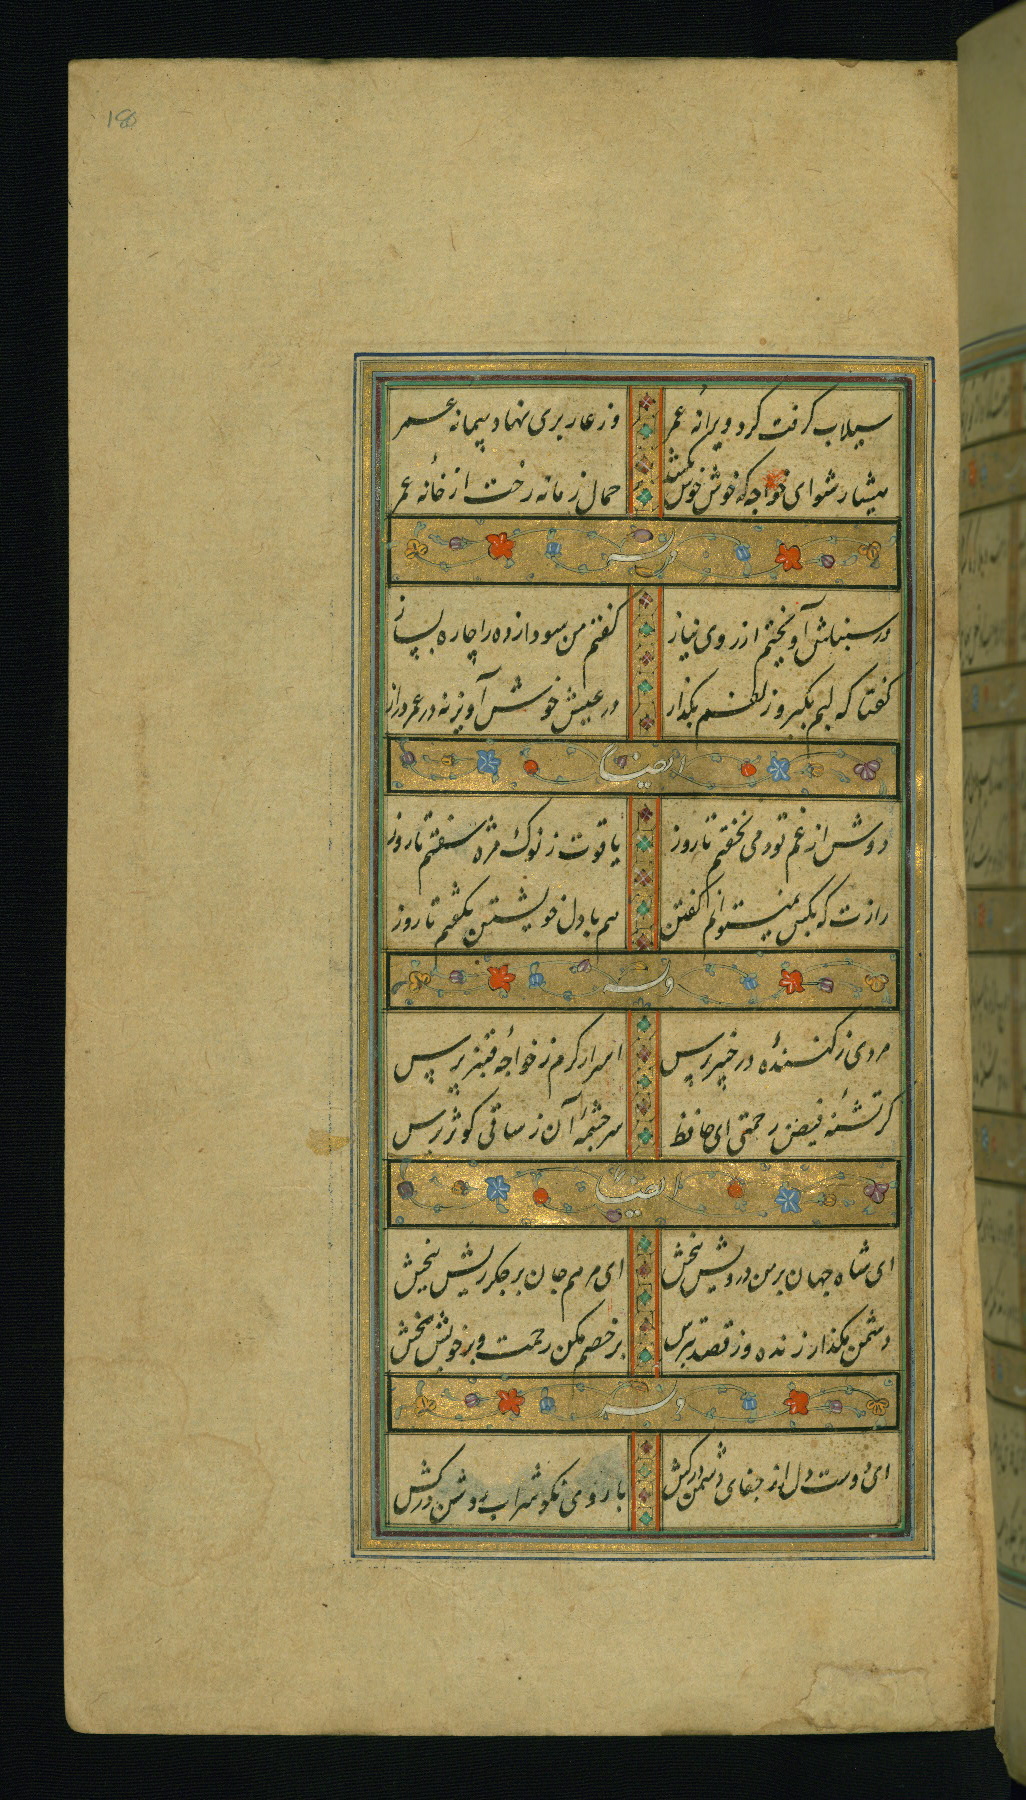 180
سیلاب گرفت گرد ویرانهٔ عمر
وز عار بری نهاد پیمانه عمر
هشیار شو ای خواجه که خوش خوش بکشد
حمال زمانه رخت از خانهٔ عمر
وله
در سنبلش آویختم از روی نیاز
گفتم من سودازده را چاره بساز
گفتا که لبم بگیر و زلفم بگذار
در عیش خوش آویز نه در عمر دراز
ایضا
دوش از غم تو دمی نخفتم تا روز
یاقوت ز نوک مژه سفتم تا روز
رازت که بکس نمیتوانم گفتن
هم با دل خویشتن بگفتم تا روز
وله
مردی ز کنندهٔ در خیبر پرس
اسرار کرم ز خواجهٔ قنبر پرس
گر تشنهٔ فیض رحمتی ای حافظ
سرچشمهٔ آن ز ساقی کوثر پرس
ایضا
ای شاه جهان بر من درویش ببخش
ای مرهم جان بر جگر ریش ببخش
دشمن مگذار زنده وز قصد بترس
بر خصم مکن رحمت و بر خویش ببخش
وله
ای دوست دل از جفای دشمن درکش
با روی نکو شراب روشن درکش